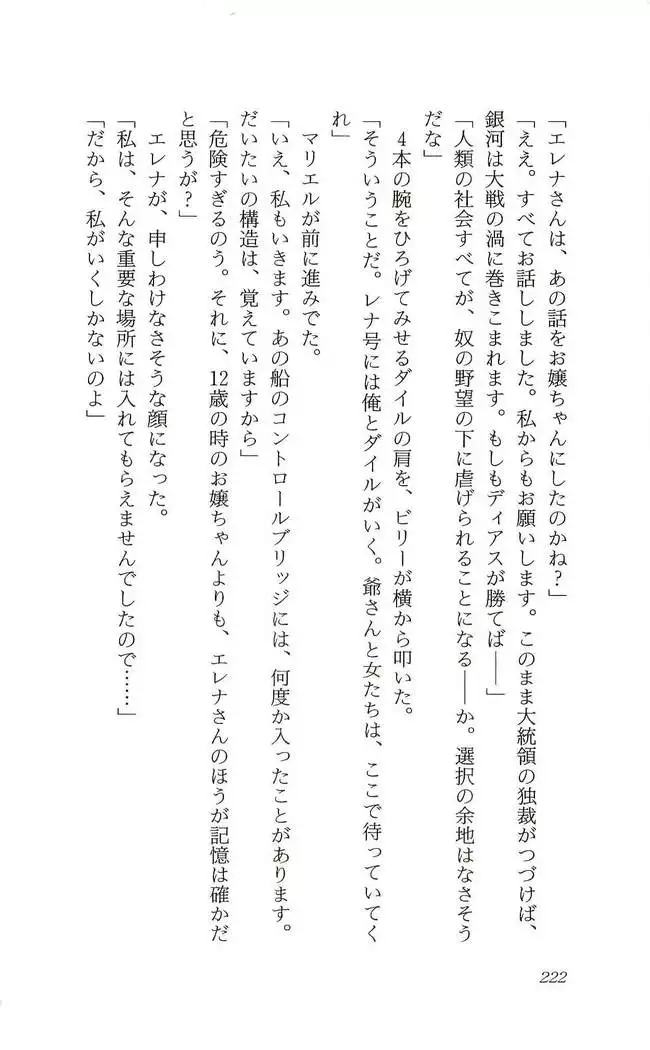 「エレナさんは、あの話をお嬢ちゃんにしたのかね?」
「ええ。すべてお話ししました。私からもお願いします。このまま大統領の独裁がつづけば、
銀河は大戦の渦に巻きこまれます。もしもディアスが勝てば――」
「人類の社会すべてが、奴の野望の下に虐げられることになる――か。選択の余地はなさそう
だな」
　4本の腕をひろげてみせるダイルの肩を、ビリーが横から叩いた。
「そういうことだ。レナ号には俺とダイルがいく。爺さんと女たちは、ここで待っていてく
れ」
　マリエルが前に進みでた。
「いえ、私もいきます。あの船のコントロールブリッジには、何度か入ったことがあります。
だいたいの構造は、覚えていますから」
「危険すぎるのう。それに、12歳の時のお嬢ちゃんよりも、エレナさんのほうが記憶は確かだ
と思うが?」
　エレナが、申しわけなさそうな顔になった。
「私は、そんな重要な場所には入れてもらえませんでしたので……」
「だから、私がいくしかないのよ」
222